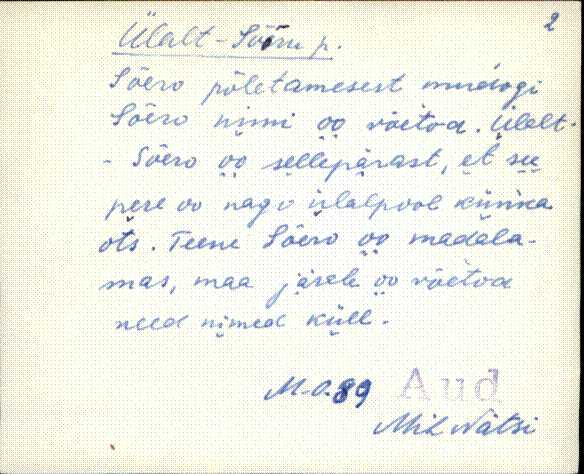 2
Ülalt-Sõeru p.
Sõero põletamesest muidogi
Sõero nimi oo võetod. Ülalt-
- Sõero oo sellepärast, et see
pere oo nagu ülalpool künka
ots. Teene Sõero oo madala-
mas, maa järele oo võetod
need nimed küll.
M-A. 89 Aud
Mih Nätsi